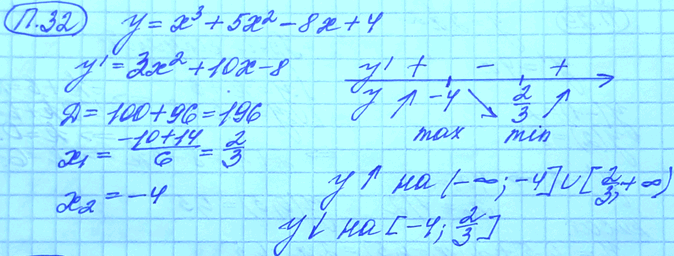 П.32 y = x³ + 5x² - 8x + 4
y' = 3x² + 10x - 8
D = 100 + 96 = 196
x₁ = (-10+14)/6 = 2/3
x₂ = -4
y' + - +
y ↗ -4 ↘ 2/3 ↗
max min
y ↑ на (-∞; -4] ∪ [2/3; +∞)
y ↓ на [-4; 2/3]